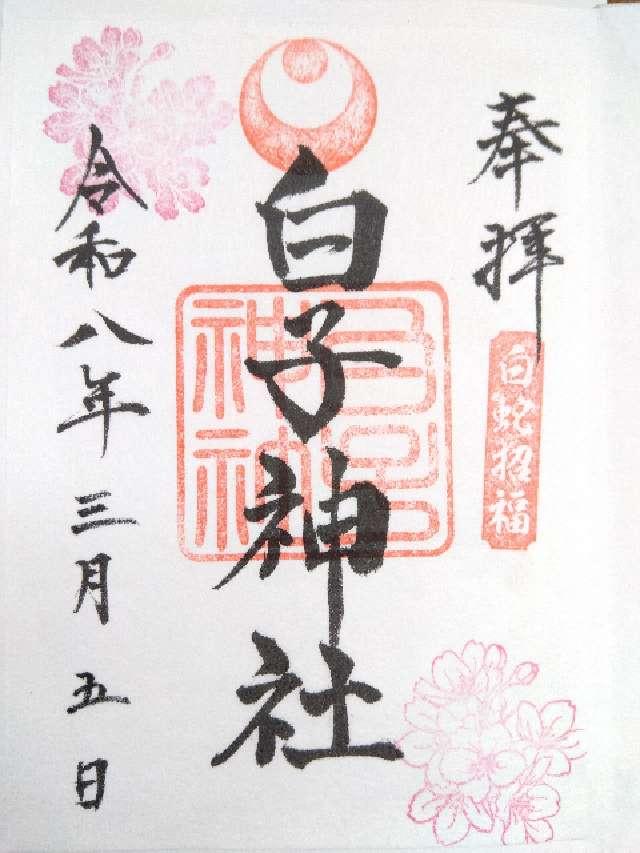 奉拝
白蛇招福
白子神社
令和八年三月五日